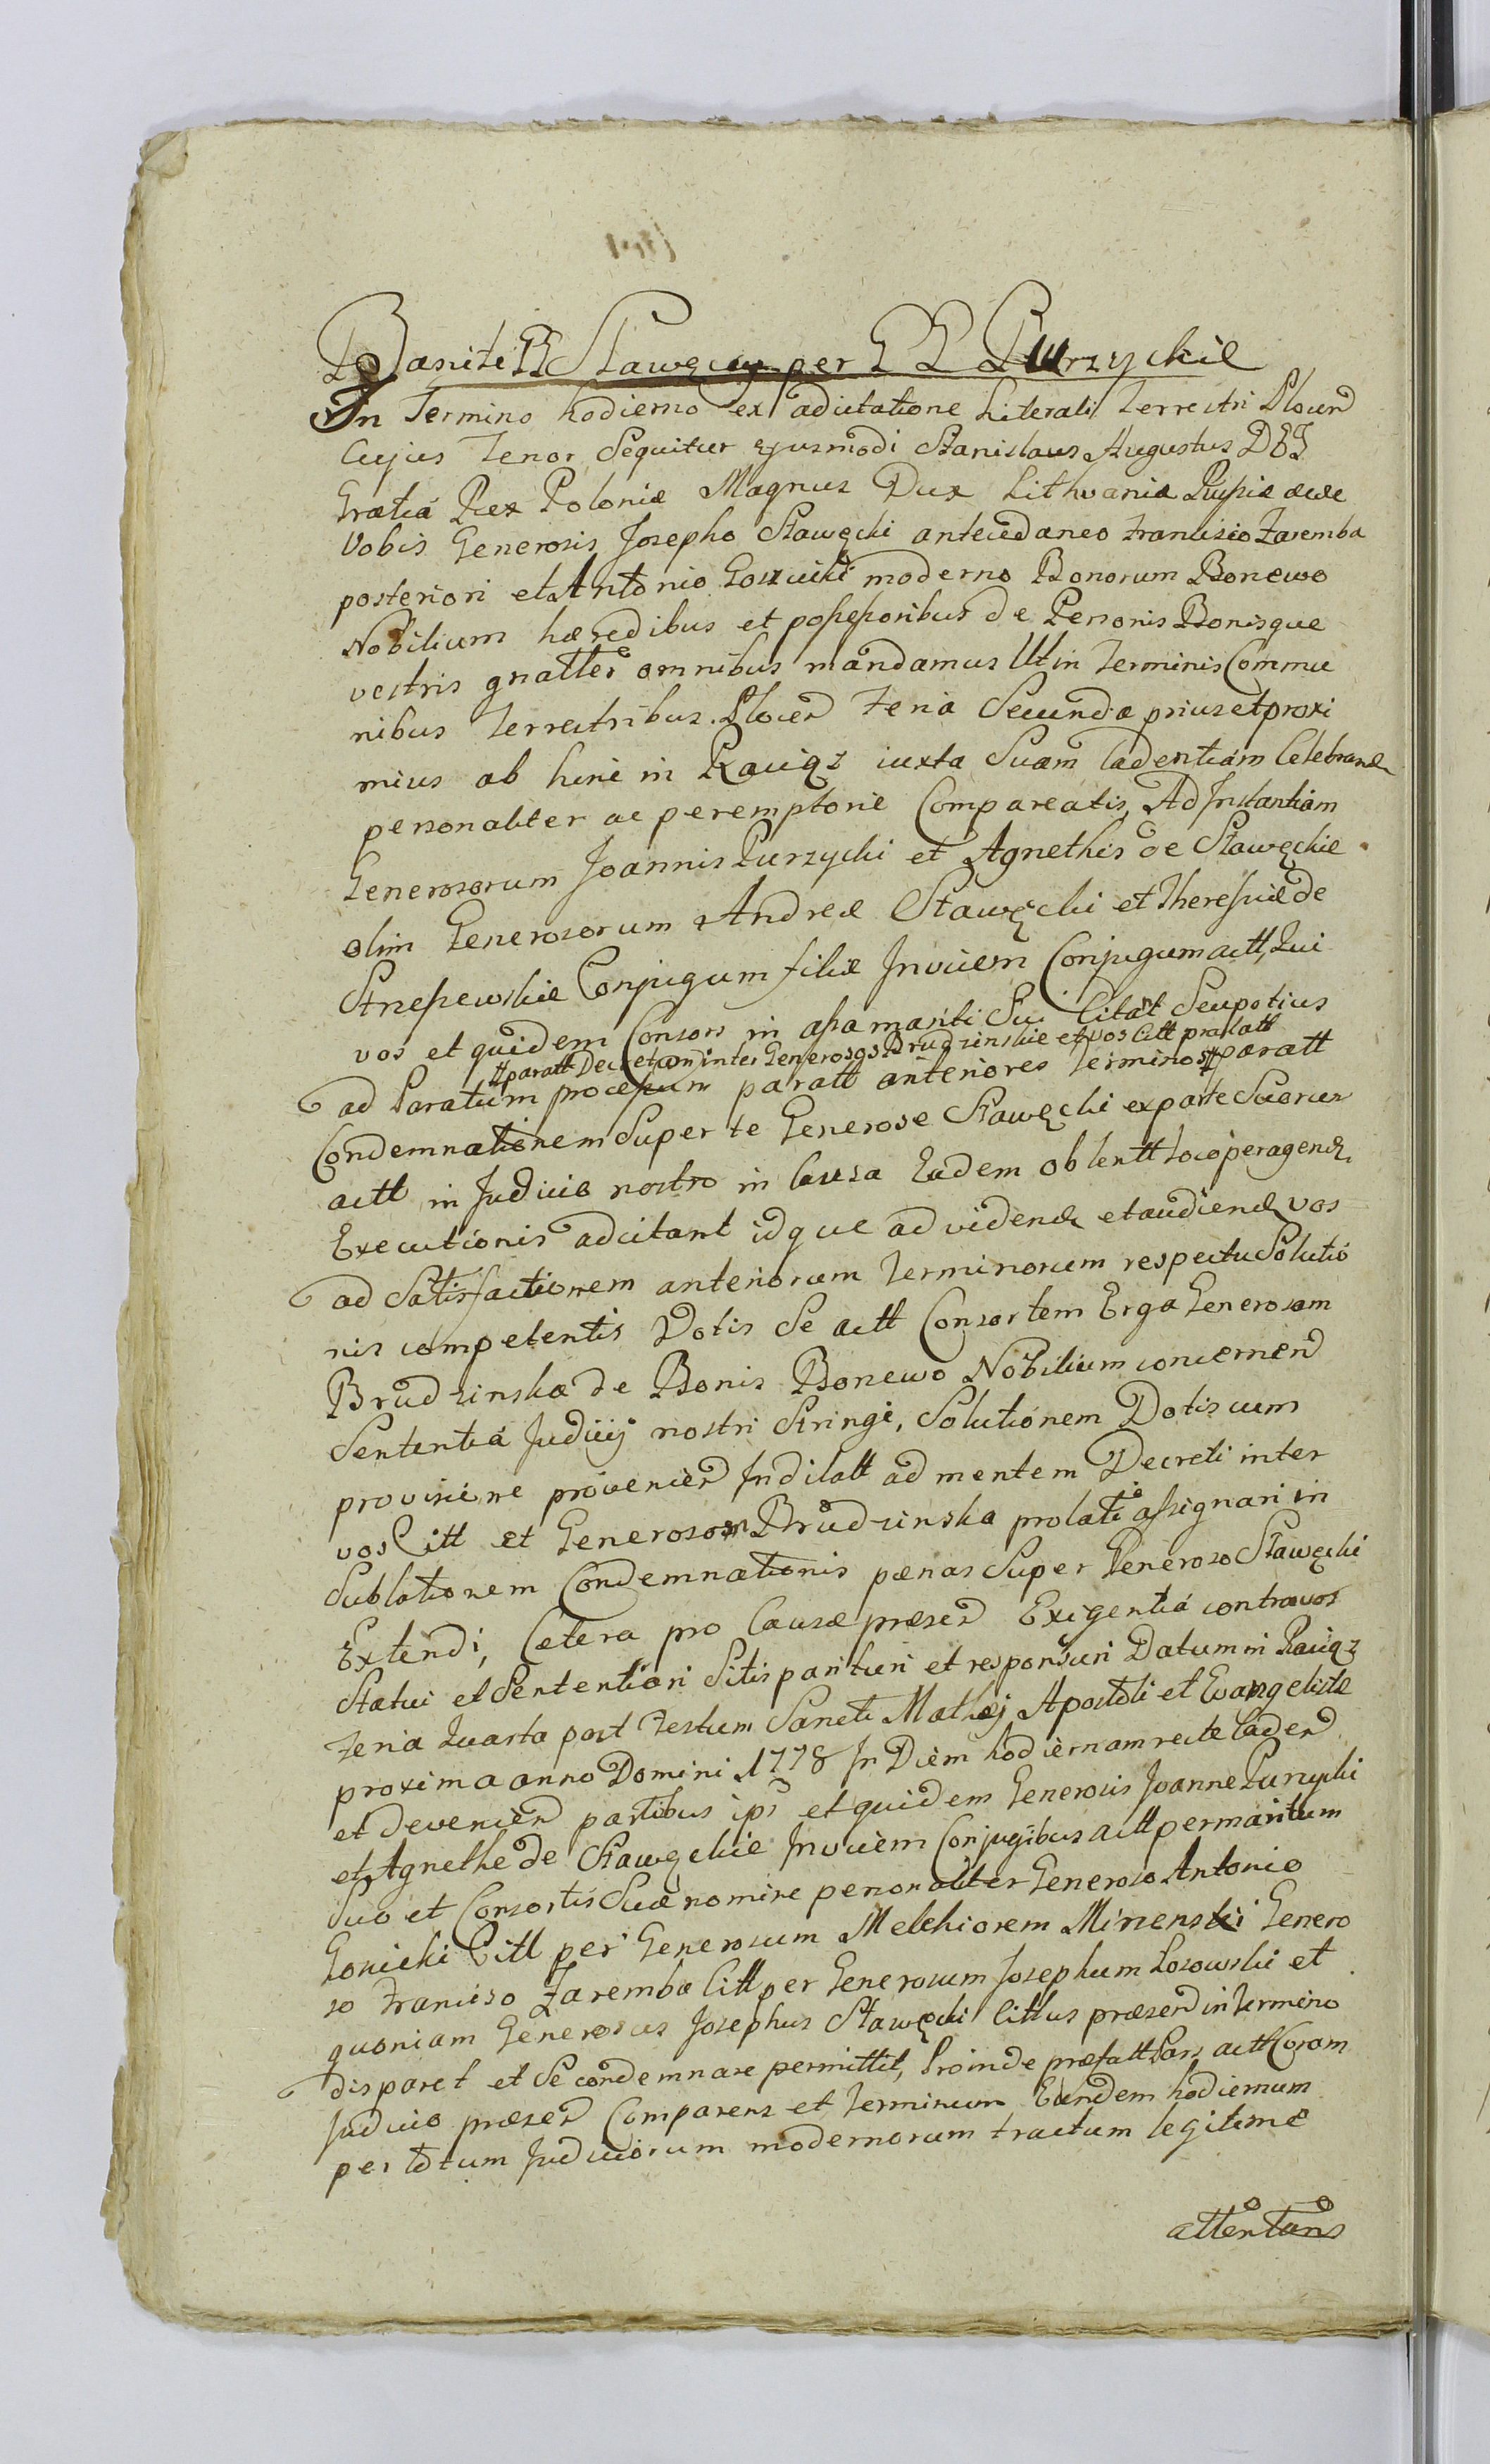 Banite R Stawęcey per G G Purzyckie
In Termino hodierno ex adcitatione Literali Terrestri Plocen
Cujus Tenor Sequitur ejusmodi Stanislaus Augustus DEI
Gratiâ Rex Poloniæ Magnus Dux Lithvaniæ Russiæ
Vobis Generosis Josepho Stawęcki antecedaneo Francisco Zaremba
posteriori et Antonio Gosucki moderno Bonorum Bonewo
Nobilium hæredibus et possessoribus de Personis Bonisque
vestris gnatter omnibus mandamus Ut in Terminis Commu
nibus Terrestribus Plocen Feria Secunda prius et proxi
mius ab hinc in Raciąz iuxta Suam Cadentiam Celebrand
personaliter ac peremptorie Compareatis, Ad Instantiam
Generosorum Joannis Purzycki et Agnethis de Stawęckie
olim Generosorum Andreæ Stawęcki et Theresiæ de
Strzesewskie Conjugum filiæ Invicem Conjugum actt, Qui
vos et quidem Consors in assa mariti Sui Citat Seu potius
tt paratt Decretum inter Generosos Brudzinskie et vos Citt prolatt
ad Paratum processum paratt anteriores Terminos tt paratt
Condemnationem Super te Generose Stawęcki ex parte Suorum
actt in Judicio nostro in Causa Eadem obtentt loco peragend
Executionis adcitant idque ad vidend et audiend vos
ad Satisfactionem anteriorum Terminorum respectu Solutio
nis competentis Dotis Se actt Consortem Erga Generosam
Brudzinska de Bonis Bonewo Nobilium concernend
Sententiâ Judicij nostri Stringi, Solutionem Dotis cum
provisione provenien Indilatt ad mentem Decreti inter
vos Citt et Generosam Brudzinska prolati assignari in
Sublationem Condemnationis pænas Super Generoso Stawęcki
Extendi, Cætera pro Causæ præsen Exigentiâ contra vos
Statui et Sententiari Sitis parituri et responsuri Datum in Raciąz
Feria Quarta post Festum Sancti Mathæj Apostoli et Evangelistæ
proxima anno Domini 1778 In Diem hodiernam recte Caden
et devenien partibus ips et quidem Generosis Joanne Purzycki
et Agnethe de Stawęckie Invicem Conjugibus actt per maritum
Suo et Consortis Suæ nomine personaliter Generoso Antonio
Gosicki Citt per Generosum Melchiorem Minenski Genero
so Francisco Zaremba Citt per Generosum Josephum Losowski et
quoniam Generosus Josephus Stawęcki Cittus præsen in Termino
disparet et Se condemnare permittit, Proinde præfatt Pars actt Coram
Judicio præsen Comparens et Terminum Eundem hodiernum
per totum Judiciorum modernorum tractum legitime
attentans